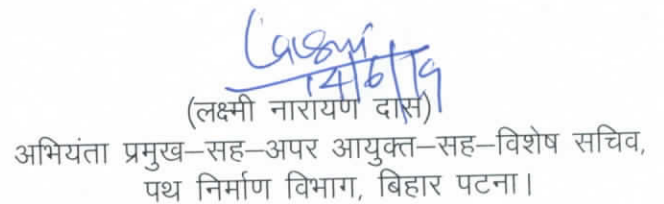 Laxmi
14/6/19
(लक्ष्मी नारायण दास)
अभियंता प्रमुख–सह–अपर आयुक्त–सह–विशेष सचिव,
पथ निर्माण विभाग, बिहार पटना।